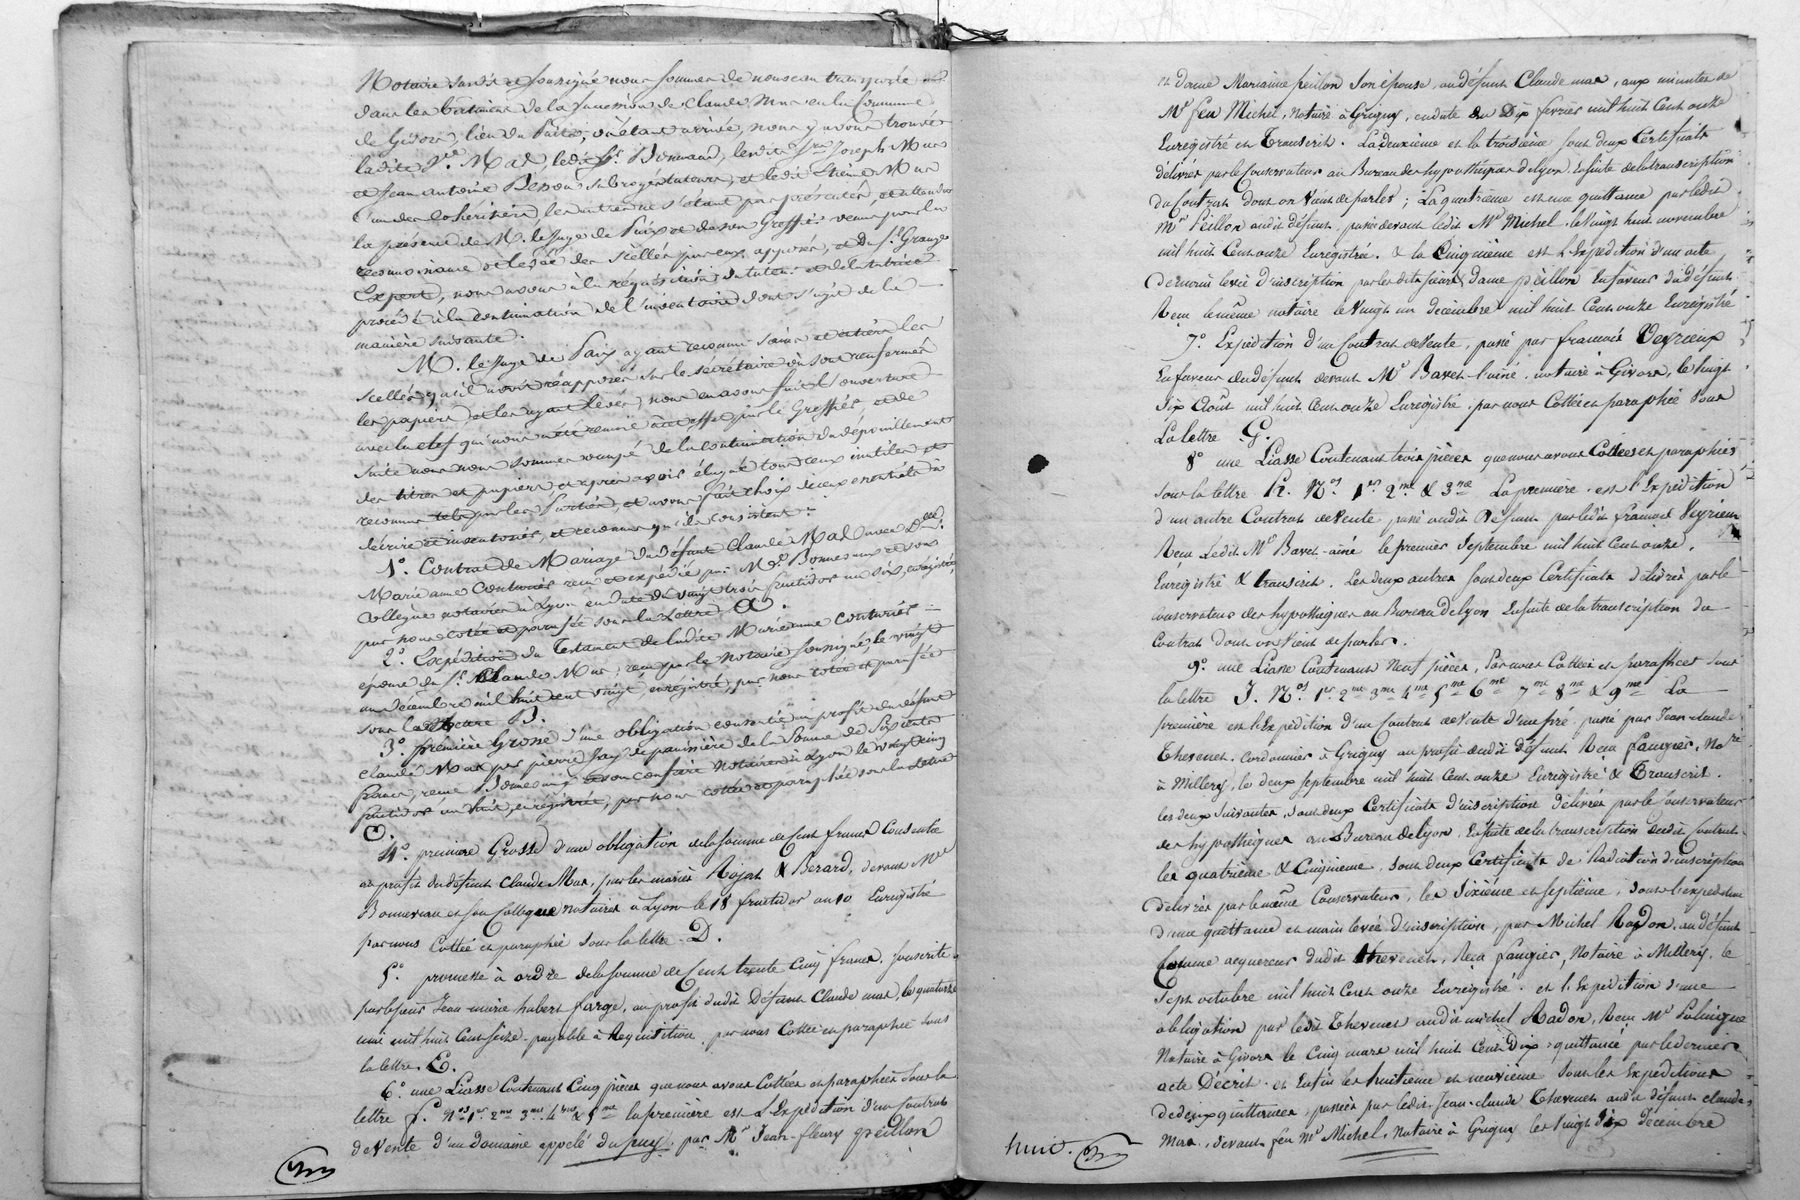 Notaire sousigné nous sommes de nouveau transporté
dans les batiments de la succession de Claude Mas en la Commune
de Givors, lieu du où étant arrivé, nous y avons trouvé
ladite Ve. Mas, ledit Sr. Bonnand, lesdits Srs Joseph Mas
et Jean Antoine subrogés tuteurs, et ledit Etienne Mas
l'un des cohéritiers, les autres ne s'étant pas présentés, et attendu
la présence de M. le Juge de Paix et de son Greffier venus pour la
reconnaissance et levée des Scellés par eux apposés, et du Sr. Grange
Expert, nous avons à la réquisition du tuteur et de la tutrice
procédé à la continuation de l'inventaire dont s'agit de la
manière suivante.
M. le Juge de Paix ayant reconnu sains et entiers les
scellés qu'il avoit réapposés sur le secrétaire où sont renfermés
les papiers, et les ayant levés, nous en avons fait l'ouverture
avec la clef qui nous a été remise à cet effet par le Greffier, et de
suite nous nous sommes occupé de la continuation du dépouillement
des titres et papiers et après avoir élagué tous ceux inutiles et
reconnus tels par les Parties, et avons fait choix de ceux essentiels à
décrire et inventorier, et reconnu qu'ils consistent:
1°. Contrat de Mariage du défunt Claude Mas avec Dlle.
Marie anne Couturier reçu et expédié par Me. Bonnevaux et son
collègue notaires à Lyon en date du vingt trois fructidor an six, enregistré,
par nous cotté et paraphé sous la Lettre A.
2°. Expédition du Testament de ladite Marie anne Couturier
épouse du Sr. Claude Mas, reçu par le Notaire sousigné, le vingt
un Décembre mil huit cent vingt, enregistré, par nous cotté et paraphé
sous la Lettre B.
3°. première Grosse d'une obligation consentie au profit du défunt
Claude Mas par pierre Fay de panissière de la Somme de Soixante
francs, reçue Bonnevaux et son confrère Notaires à Lyon le vingt cinq
fructidor an huit, enregistrée, par nous cottée et paraphée sous la Lettre
C.
4°. première Grosse d'une obligation de la somme de Cent francs Consentie
au profit du défunt Claude Mas, par les mariés Rojat & Berard, devant Me
Bonnevau et son Collegue notaires à Lyon le 18 fructidor an 10 Enregistré
par nous Cottée et paraphée sous la lettre D.
5° promesse à ordre de la somme de Cent trente Cinq francs, souscrite
par le sieur Jean-marie hubert farge, au profit dudit Défunt Claude mas, le quatorze
mai mil huit Cent seize payable à Requisition, par nous Cottée et paraphée sous
la lettre E.
6° une Liasse Contenant Cinq pièces que nous avons Cottées et paraphées sous la
lettre F. nos 1er 2me 3me 4me & 5me la première est l'Expédition d'un Contrat
de Vente d'un Domaine appelé du puy par Mr Jean-fleury peillon
et dame Mariaine peillon son épouse, au défunt Claude mas, aux minutes de
Me feu Michel, Notaire à Grigny, en date du Dix fevrier mil huit Cent onze
Enregistré et Transcrit. La deuxième et la troisième sont deux Certificats
délivrés par le Conservateur au Bureau des hypothèques de Lyon Ensuite de la transcription
du Contrat dont on vient de parler; La quatrième est une quittance par ledit
Mr Peillon audit défunt passée devant ledit Me Michel le Vingt huit novembre
mil huit Cent onze Enregistrée. & la Cinquième est l'Expédition d'un acte
de main levée d'inscription par lesdits sieur & dame peillon En faveur du défunt
Reçu le même notaire le Vingt un decembre mil huit Cent onze Enregistré
7°. Expédition d'un Contrat de Vente, passé par francois Veyrieux
En faveur du défunt devant Me Baret-l'ainé, notaire à Givors, le Vingt
Six Août mil huit Cent onze Enregistré, par nous Cottée et paraphée sous
La lettre G.
8° une Liasse Contenant trois pièces que nous avons Cottées et paraphées
sous la lettre H. Nos 1er 2me & 3me La première est l'Expédition
d'un autre Contrat de Vente passé audit Défunt par ledit francois Veyrieux
Reçu ledit Me Baret-ainé le premier Septembre mil huit Cent onze,
Enregistré & transcrit. Les deux autres sont deux Certificats délivrés par le
Conservateur des hypotheques au Bureau de Lyon Ensuite de la transcription du
Contrat dont on vient de parler.
9° une Liasse Contenant Neuf pièces, par nous Cottées et paraphées sous
la lettre J. Nos 1er 2me 3me 4me 5me 6me 7me 8me & 9me La
première est l'Expédition d'un Contrat de Vente d'un pré passé par Jean-claude
Thevenet, Cordonnier à Grigny au profit dudit défunt Reçu faugier, Nore
à Millery, le deux septembre mil huit Cent onze Enregistré & Transcrit.
les deux suivantes, sont deux Certificats d'inscription délivrés par le Conservateur
des hypothèques au Bureau de Lyon, Ensuite de la transcription dudit Contrat
les quatrième & Cinquieme, sont deux Certificats de Radiation d'inscription
delivrés par le même Conservateur, les Sixième et septième, sont l'expédition
d'une quittance et main levée d'inscription, par Michel Radon, au défunt
Comme acquereur dudit thevenet, Reçu faugier, Notaire à Millery, le
sept octobre mil huit Cent onze Enregistré. et l'Expédition d'une
obligation par ledit Thevenet audit michel Radon, Reçu Me
Notaire à Givors le Cinq mars mil huit Cent Dix, quittancée par le dernier
acte Décrit. et Enfin les huitième et neuvième sont les Expéditions
de deux quittances passées par ledit Jean-claude Thevenet audit défunt Claude
Mas, devant feu Me Michel, Notaire à Grigny les Vingt Six Décembre